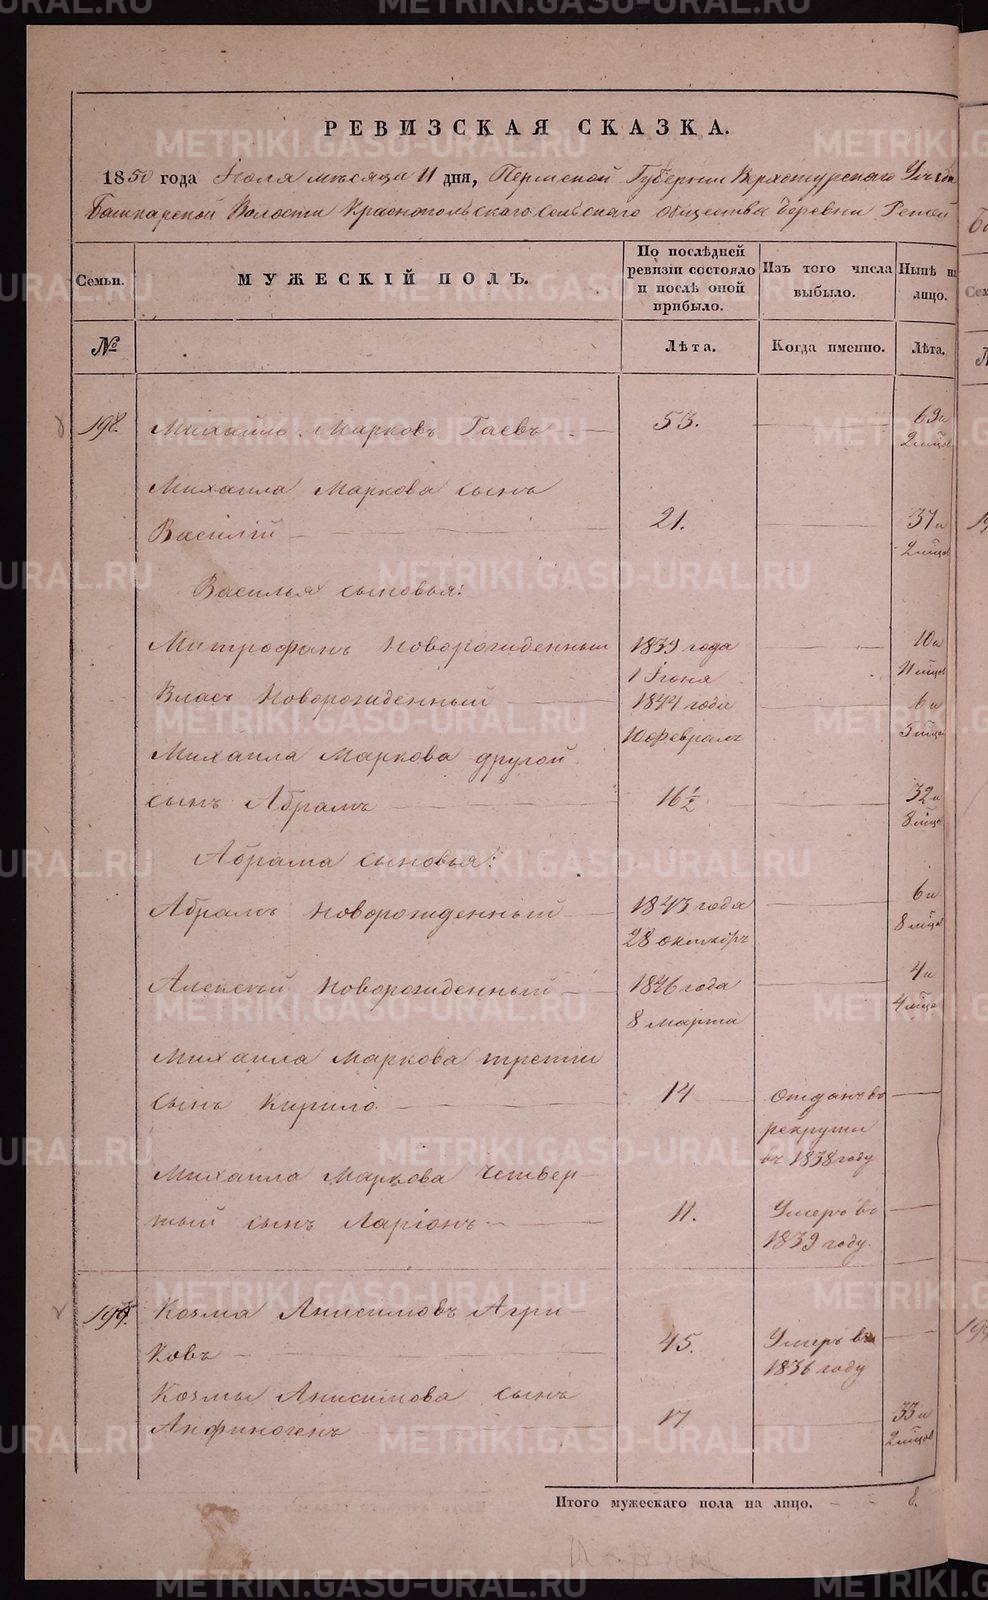 РЕВИЗСКАЯ СКАЗКА.
1850 года Июля мѣсяца 11 дня, Пермской Губернии Верхотурскаго Уѣзда
Башкарской Волости Краснопольскаго Сельскаго Общества деревни
Семьи. МУЖЕСКІЙ ПОЛЪ. По послѣдней ревизіи состояло и послѣ оной прибыло. Изъ того числа выбыло. Нынѣ на лицо.
№ Лѣта. Когда именно. Лѣта.
198. Михайло Марковъ Гаевъ 53. 69 и
2 мѣсяц
Михаила Маркова сынъ
Василій 21. 37 и
2 мѣсяц
Василья сыновья:
Митрофанъ Новорожденный 1839 года 10 и
1 Іюня 11 мѣсяц
Власъ Новорожденный 1844 года 6 и
10 февраля 5 мѣсяц
Михаила Маркова другой
сынъ Абрамъ 16½ 32 и
8 мѣсяц
Абрама сыновья:
Абрамъ Новорожденный 1843 года 6 и
28 октября 8 мѣсяц
Алексѣй Новорожденный 1846 года 4 и
8 марта 4 мѣсяц
Михаила Маркова третій
сынъ Кирило 14 Отданъ въ
рекруты
въ 1838 году
Михаила Маркова Четвер-
тый сынъ Ларіонъ 11. Умеръ въ
1839 году.
199. Козма Анисимовъ Агри-
ковъ 45. Умеръ въ
1836 году
Козмы Анисимова сынъ
Анфиногенъ 17 33 и
2 мѣсяц
Итого мужескаго пола на лицо. 8.
METRIKI.GASO-URAL.RU